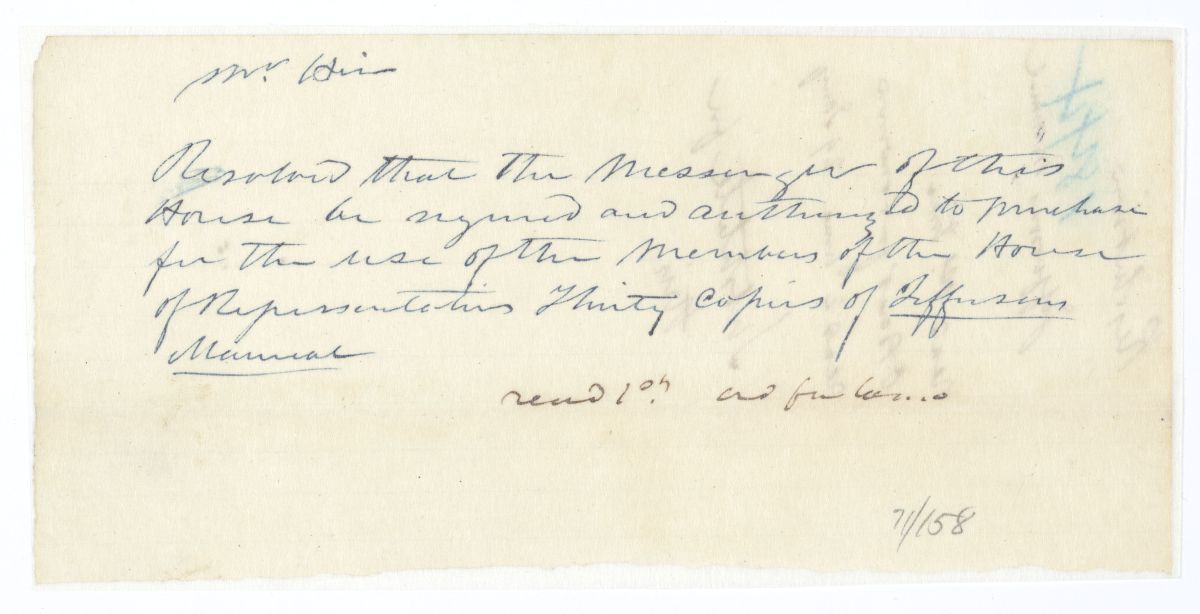 Mr.
Resolved that the Messenger of this
House be and authorized to purchase
for the use of the Members of the House
of Representatives Thirty Copies of Jeffersons
Manual
read 1st. and
71/158